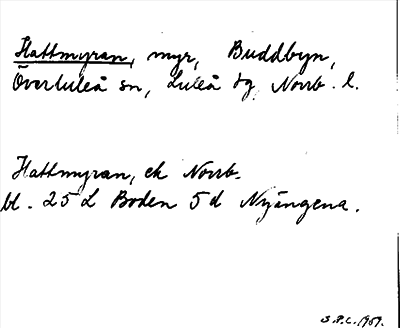 Hattmyran, myr, Buddbyn,
Överluleå sn, Luleå tg. Norrb. l.
Hattmyran, ek Norrb.
bl. 25 L Boden 5 d Nyängena.
S.P.L. 1959.